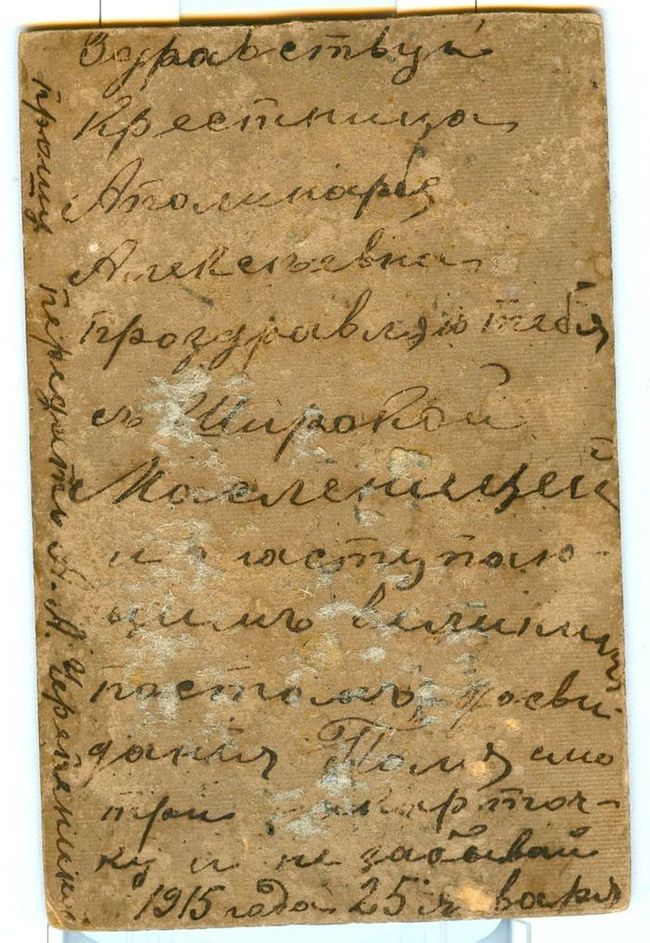 Здравствуй
Крестница
Аполинарья
Алексеъевна
проздравляю тебя
съ Широкой
Масленицей
и наступаю-
щимъ великимъ
постомъ, досви-
дания Поля смо
три карточ-
ку и не забывай
1915 года 25 января
прошу передать А. А.